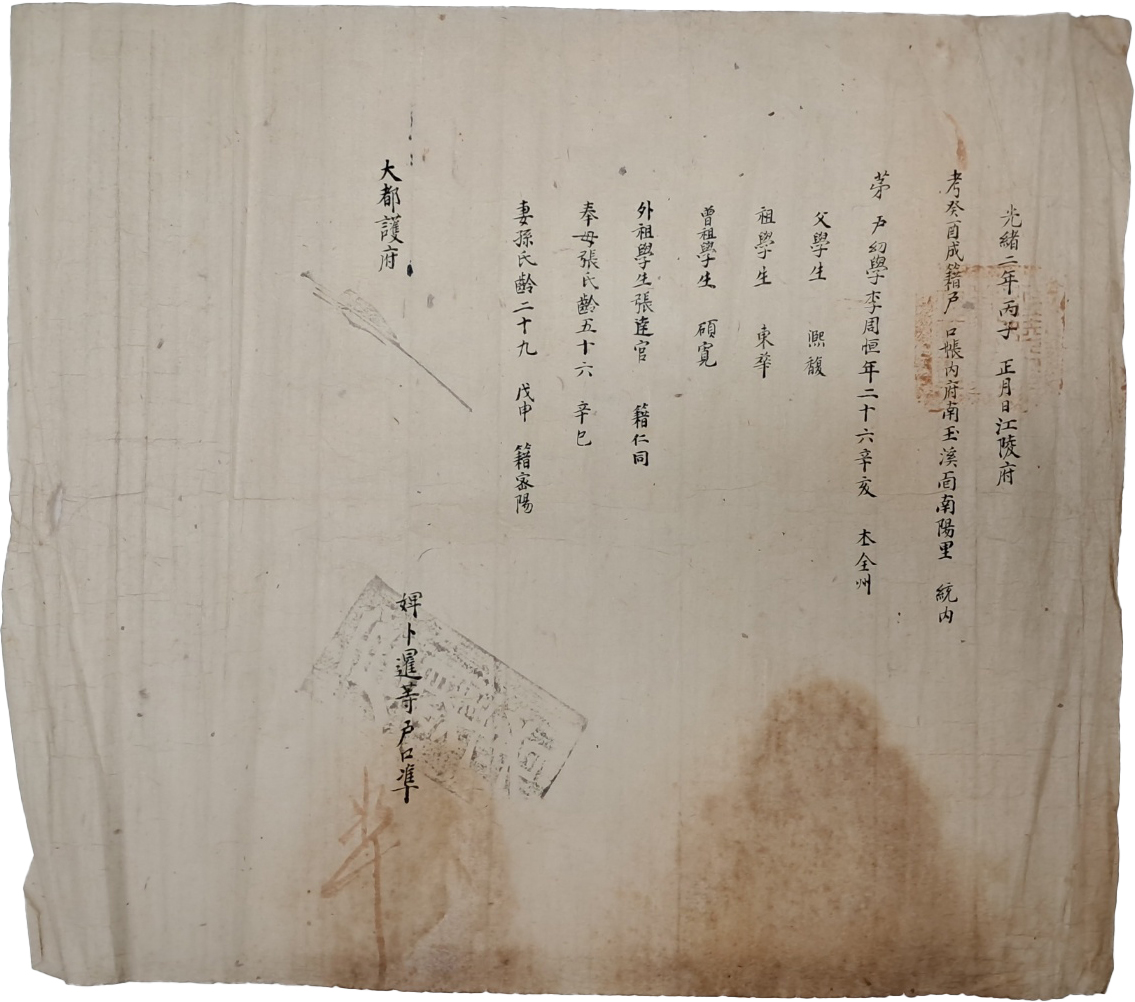 光緖二年丙子 正月日江陵府
考癸酉成籍戶口帳內府南玉溪面南陽里 統內
苐 戶幼學李周恒年二十六辛亥 本全州
父學生 熙馥
祖學生 東華
曾祖學生 碩寬
外祖學生張達官 籍仁同
奉母張氏齡五十六 辛巳
妻孫氏齡二十九 戊申 籍密陽
大都護府
婢卜暹等戶口准